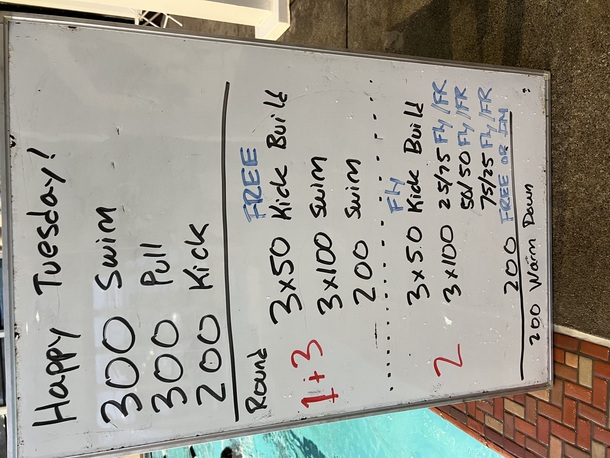 Happy Tuesday!
300 Swim
300 Pull
200 Kick
Round
FREE
1+3
3x50 Kick Build
3x100 Swim
200 Swim
Fly
3x50 Kick Build
2
3x100 25/75 Fly/FR
50/50 Fly/FR
75/25 Fly/FR
200 FREE OR IM
200 Warm Down